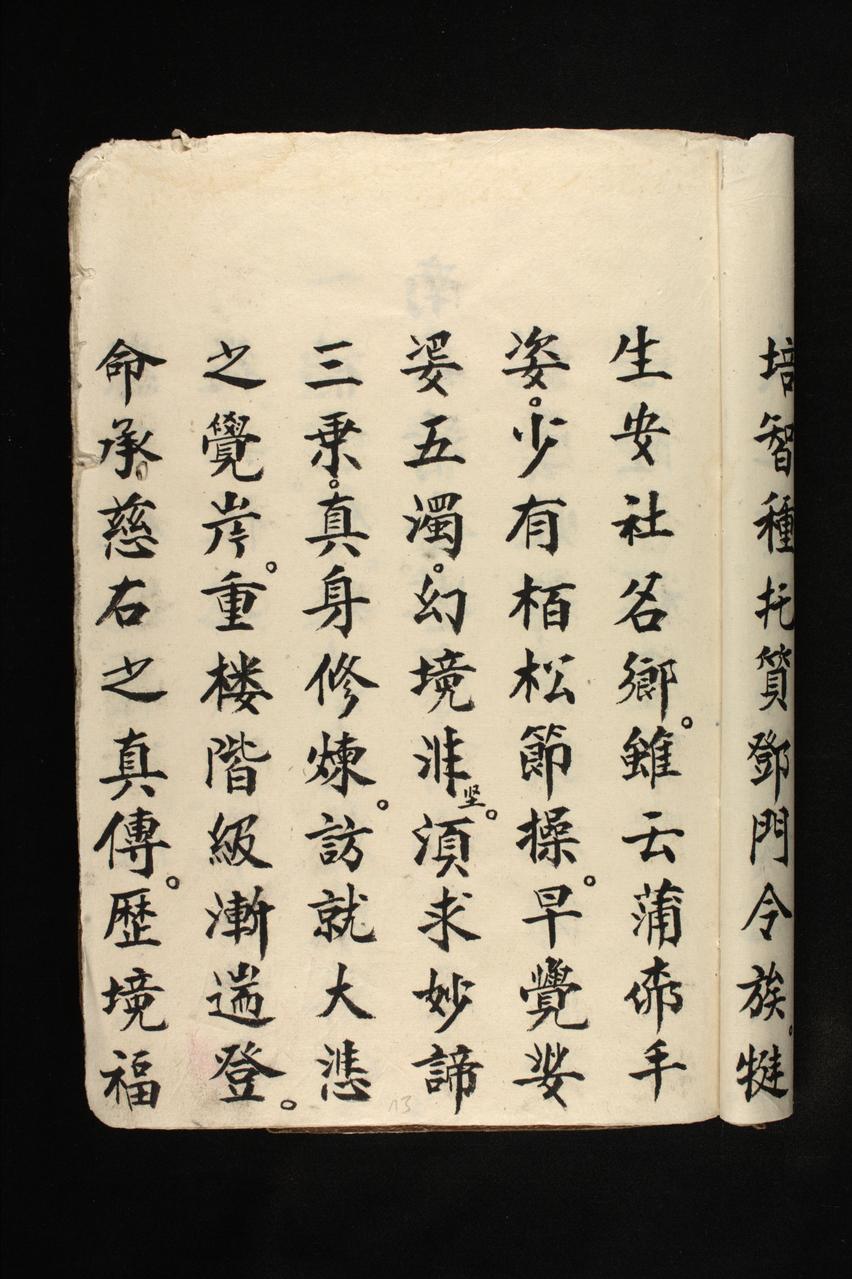 培智種托質鄧門令族。㨗
生安社名鄉。雖云蒲柳手
姿。少有栢松節操。早覺娑
婆五濁。幻境非坚。須求妙諦
三乗。真身修煉。訪就大悲
之覺岸。重楼階級漸遄登。
命承。慈右之真傳。歷境福